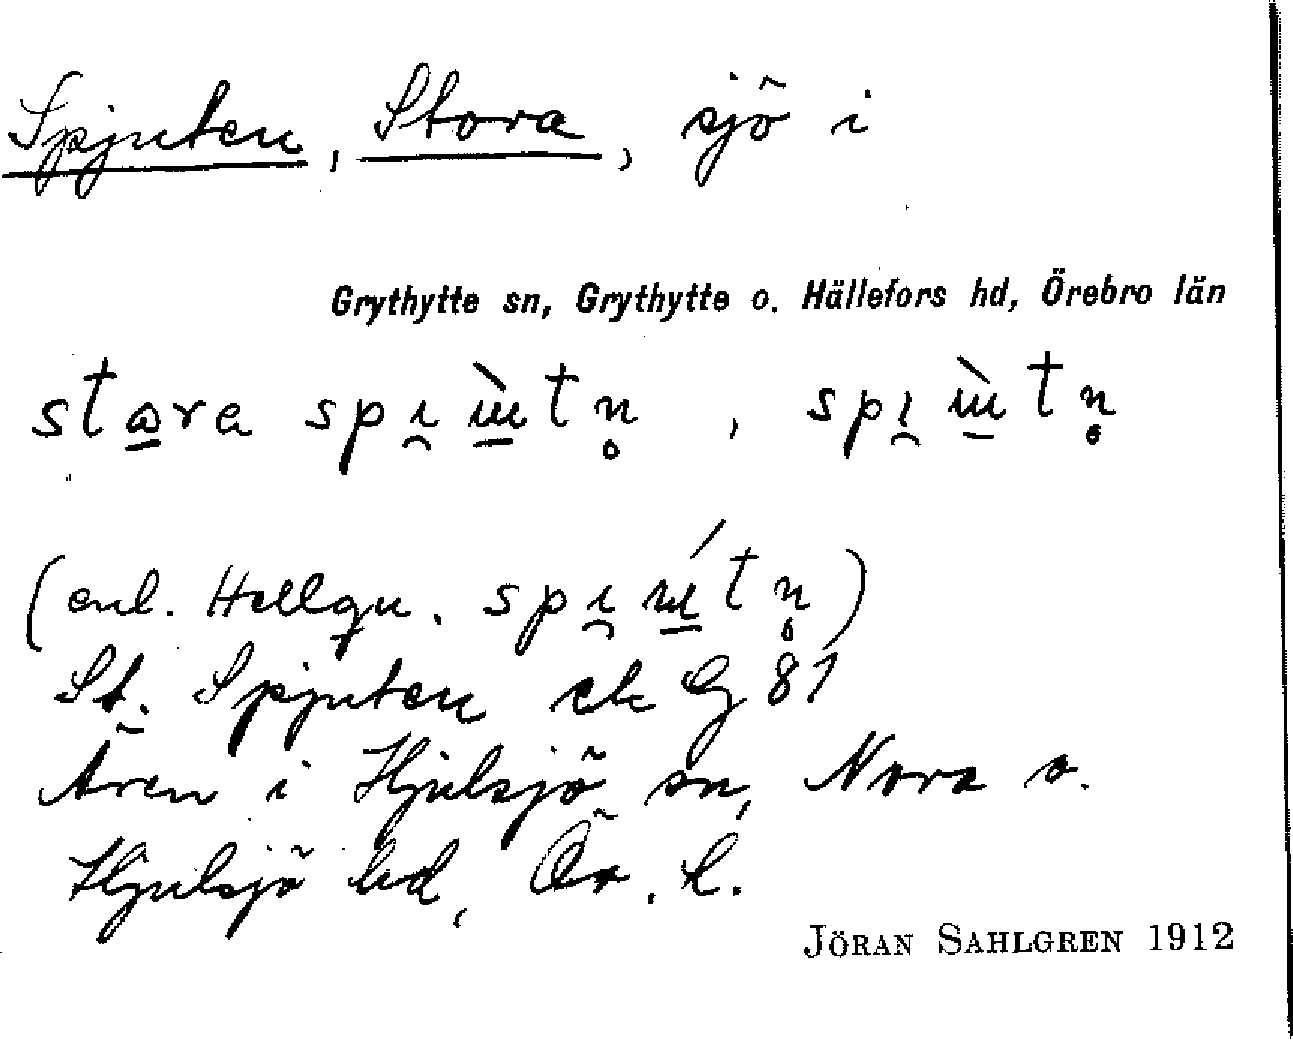 Spjuten, Stora, sjö i
Grythytte sn, Grythytte o. Hällefors hd, Örebro län
stωra spı̯ɯ̲̀tn̥, spı̯ɯ̲̀tn̥
(enl. Hellqu. spı̯ɯ̲́tn̥)
St. Spjuten ek G 81
Ären i Hjulsjö sn, Nora o.
Hjulsjö hd, Ör. l.
JÖRAN SAHLGREN 1912